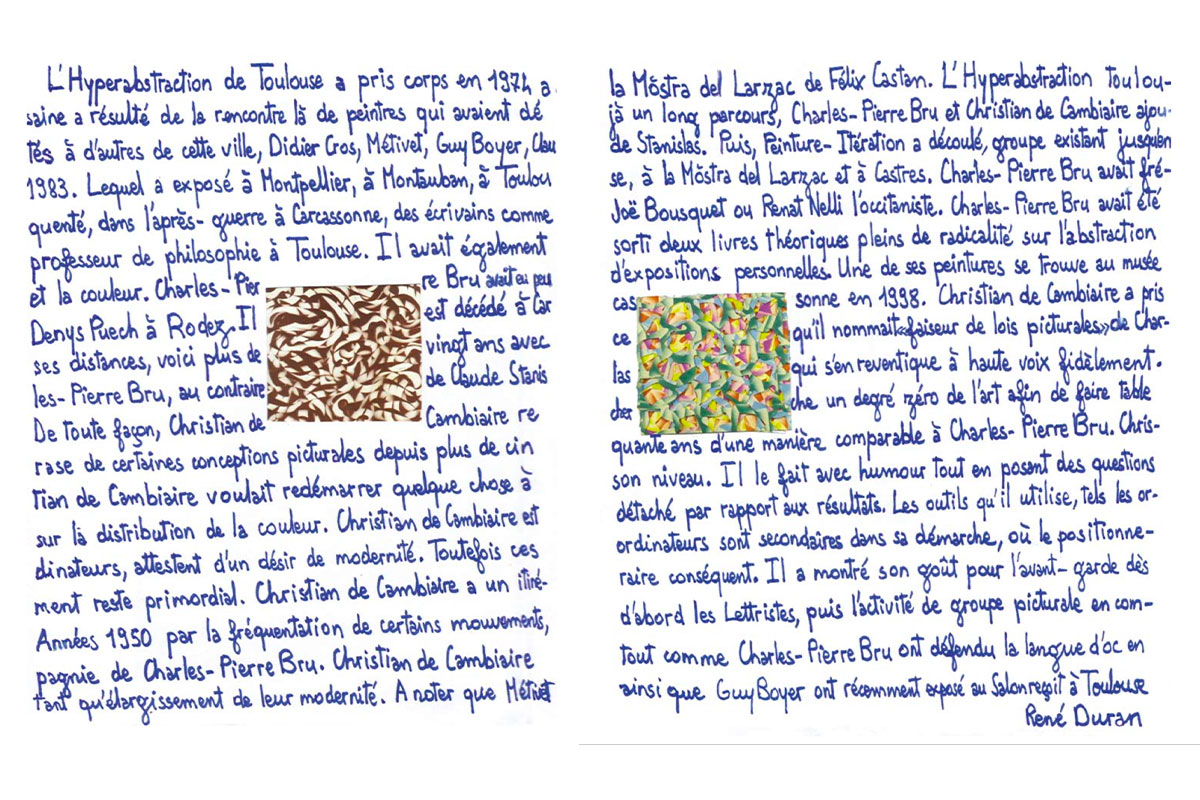 L'Hyperabstraction de Toulouse a pris corps en 1974 a
la Mòstra del Larzac de Félix Castan. L'Hyperabstraction toulou-
saine a résulté de la rencontre là de peintres qui avaient dé
jà un long parcours, Charles-Pierre Bru et Christian de Cambiaire ajou-
tés à d'autres de cette ville, Didier Cros, Métivet, Guy Boyer, Clau
de Stanislas. Puis, Peinture-Itération a découlé, groupe existant jusqu'en
1983. Lequel a exposé à Montpellier, à Montauban, à Toulou
se, à la Mòstra del Larzac et à Castres. Charles-Pierre Bru avait fré-
quenté, dans l'après-guerre à Carcassonne, des écrivains comme
Joë Bousquet ou Renat Nelli l'occitaniste. Charles-Pierre Bru avait été
professeur de philosophie à Toulouse. Il avait également
sorti deux livres théoriques pleins de radicalité sur l'abstraction
et la couleur. Charles-Pier re Bru avait eu peu
d'expositions personnelles. Une de ses peintures se trouve au musée
Denys Puech à Rodez. Il est décédé à Car
cas sonne en 1998. Christian de Cambiaire a pris
ses distances, voici plus de vingt ans avec
ce qu'il nommait «faiseur de lois picturales» de Char-
les-Pierre Bru, au contraire de Claude Stanis
las qui s'en reventique à haute voix fidèlement.
De toute façon, Christian de Cambiaire re
cher che un degré zéro de l'art afin de faire table
rase de certaines conceptions picturales depuis plus de cin
quante ans d'une manière comparable à Charles-Pierre Bru. Chris-
tian de Cambiaire voulait redémarrer quelque chose à
son niveau. Il le fait avec humour tout en posant des questions
sur la distribution de la couleur. Christian de Cambiaire est
détaché par rapport aux résultats. Les outils qu'il utilise, tels les or-
dinateurs, attestent d'un désir de modernité. Toutefois ces
ordinateurs sont secondaires dans sa démarche, où le positionne-
ment reste primordial. Christian de Cambiaire a un itiné-
raire conséquent. Il a montré son goût pour l'avant-garde dès
Années 1950 par la fréquentation de certains mouvements,
d'abord les Lettristes, puis l'activité de groupe picturale en com-
pagnie de Charles-Pierre Bru. Christian de Cambiaire
tout comme Charles-Pierre Bru ont défendu la langue d'oc en
tant qu'élargissement de leur modernité. A noter que Métivet
ainsi que Guy Boyer ont récemment exposé au Salon reçoit à Toulouse
René Duran